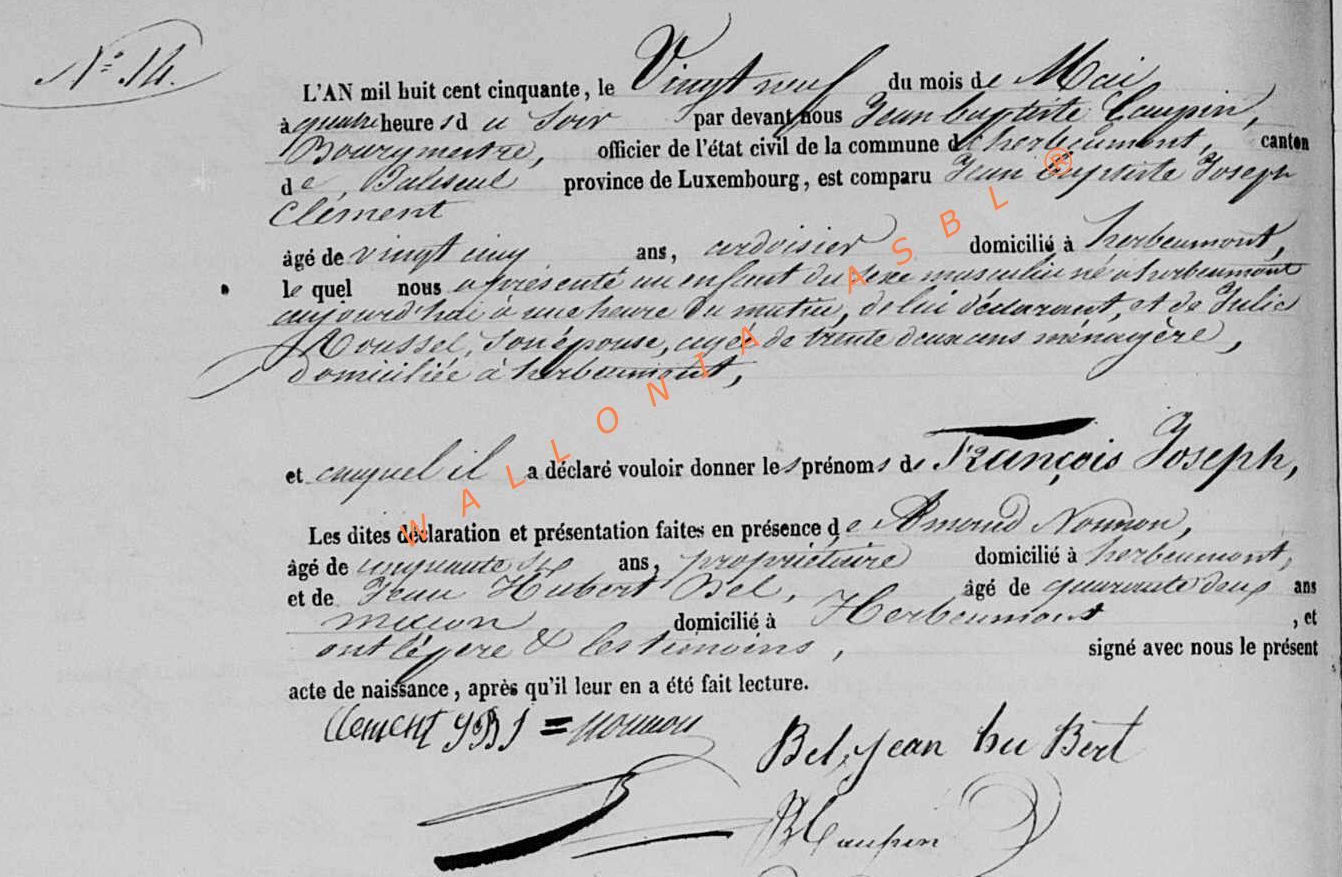 N° 14.
L'AN mil huit cent cinquante, le Vingt neuf du mois de Mai
à quatre heures du Soir par devant nous Jean baptiste Caupin,
Bourgmestre, officier de l'état civil de la commune d'herbeumont, canton
de Paliseul province de Luxembourg, est comparu Jean Baptiste Joseph
Clément
âgé de vingt cinq ans, ardoisier domicilié à herbeumont,
le quel nous a présenté un enfant du sexe masculin né à herbeumont
aujourd'hui à une heure du matin, de lui déclarant, et de Julie
Roussel, son épouse, agée de trente deux ans ménagère,
domiciliée à herbeumont,
et auquel il a déclaré vouloir donner les prénoms de François Joseph,
Les dites déclaration et présentation faites en présence de Amand Nonnon,
âgé de cinquante six ans, propriétaire domicilié à herbeumont,
et de Jean Hubert Bel, âgé de quarante deux ans
maçon domicilié à Herbeumont, et
ont le pere & les témoins, signé avec nous le présent
acte de naissance, après qu'il leur en a été fait lecture.
Clement JBJ = nonnon
Bel, jean hu Bert
JB Caupin
WALLONIA ASBL ®